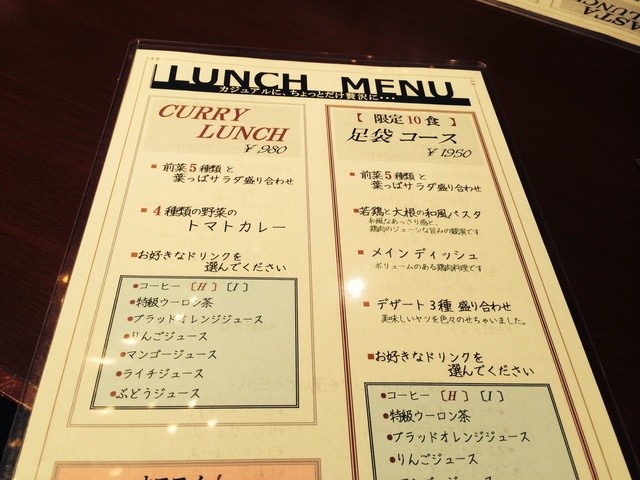 ASTA
LUNCH
LUNCH MENU
カジュアルに、ちょっとだけ贅沢に・・・
CURRY
LUNCH
¥980
■前菜5種類と
葉っぱサラダ盛り合わせ
■4種類の野菜の
トマトカレー
■お好きなドリンクを
選んでください
●コーヒー [H] [I]
●特級ウーロン茶
●ブラッドオレンジジュース
●りんごジュース
●マンゴージュース
●ライチジュース
●ぶどうジュース
【 限定10食 】
足袋コース
¥1950
■前菜5種類と
葉っぱサラダ盛り合わせ
■若鶏と大根の和風パスタ
和風なあっさり感と
鶏肉のジューシな旨みの競演です
■メインディッシュ
ボリュームのある鶏肉料理です
■デザート3種 盛り合わせ
美味しいヤツを色々のせちゃいました。
■お好きなドリンクを
選んでください
●コーヒー [H] [I]
●特級ウーロン茶
●ブラッドオレンジジュース
●りんごジュース